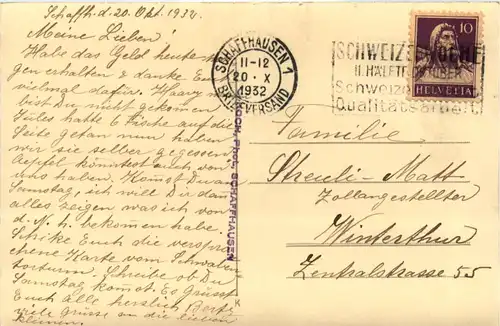 Schaffh. d. 20. Okt. 1932.
Meine Lieben!
Habe das Geld heute
gen erhalten & danke
vielmal dafür. Haary
bist du nicht gekommen
Jules hatte 2 Fische auf die
Seite getan nun haben
wir sie selber gegessen
Aepfel könntest auch von
uns haben. Komst Du am
Samstag, ich will Dir dann
alles zeigen was ich von
d. M. bekommen habe.
Schike Euch die verspro
chene Karte vom Schwaben
torturm. Schreibe ob Du
Samstag komst. Es Grüsst
Euch alle herzlich Berti
viele Grüsse an die lieben
kleinen.
KOCH, Phot. SCHAFFHAUSEN
SCHAFFHAUSEN 1
11-12
20. X
1932
BRIEFVERSAND
SCHWEIZERWOCHE
II. HÄLFTE OKTOBER
Schweizer
Qualitätsarbeit
10
HELVETIA
Familie
Streuli-Matt
Zollangestellter
Winterthur
Zentralstrasse 55